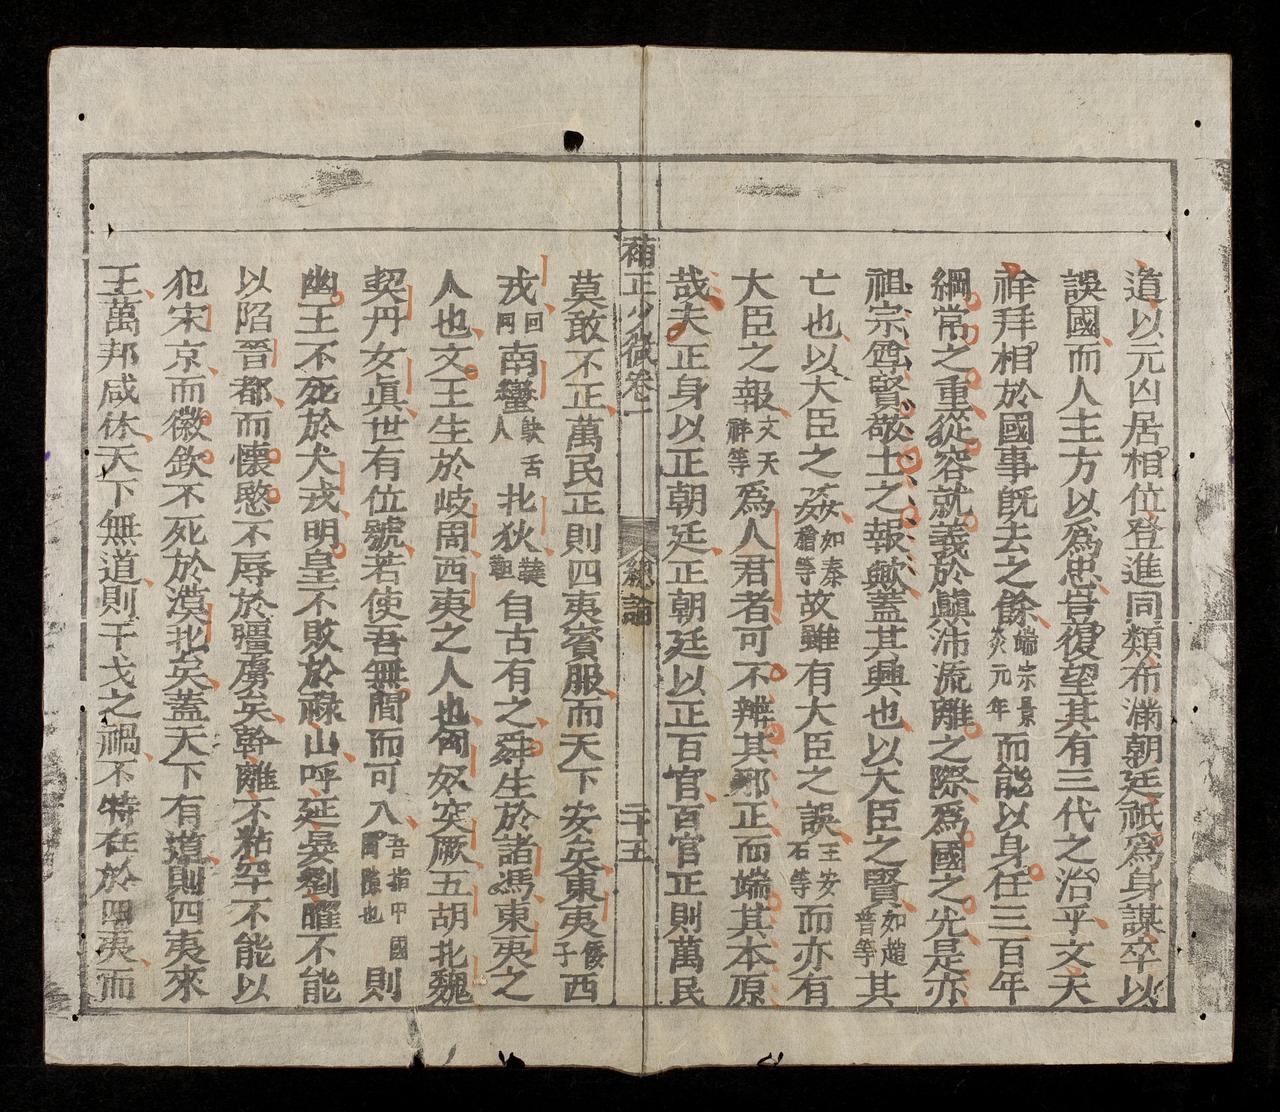 道以元凶居相位登進同類布滿朝廷祇爲身謀卒以
誤國而人主方以爲忠豈復望其有三代之治乎文天
祥拜相於國事旣去之餘端宗景炎元年而能以身任三百年
綱常之重從容就義於顚沛流離之際爲國之光是亦
祖宗尊賢敬士之報歟蓋其興也以大臣之賢如趙普等其
亡也以大臣之姦如秦檜等故雖有大臣之誤王安石等而亦有
大臣之報文天祥等爲人君者可不辨其邪正而端其本原
哉夫正身以正朝廷正朝廷以正百官百官正則萬民
補正少微卷一 總論 二十五
莫敢不正萬民正則四夷賓服而天下安矣東夷倭子西
戎回回南蠻鴃舌人北狄韃靼自古有之舜生於諸馮東夷之
人也文王生於岐周西夷之人也匈奴突厥五胡北魏
契丹女眞世有位號若使吾無間而可入吾指中國間隙也則
幽王不死於犬戎明皇不敗於祿山呼延晏劉曜不能
以陷晉都而懷愍不辱於疆虜矣幹離不粘罕不能以
犯宋京而徽欽不死於漠北矣蓋天下有道則四夷來
王萬邦咸休天下無道則干戈之禍不特在於四夷而